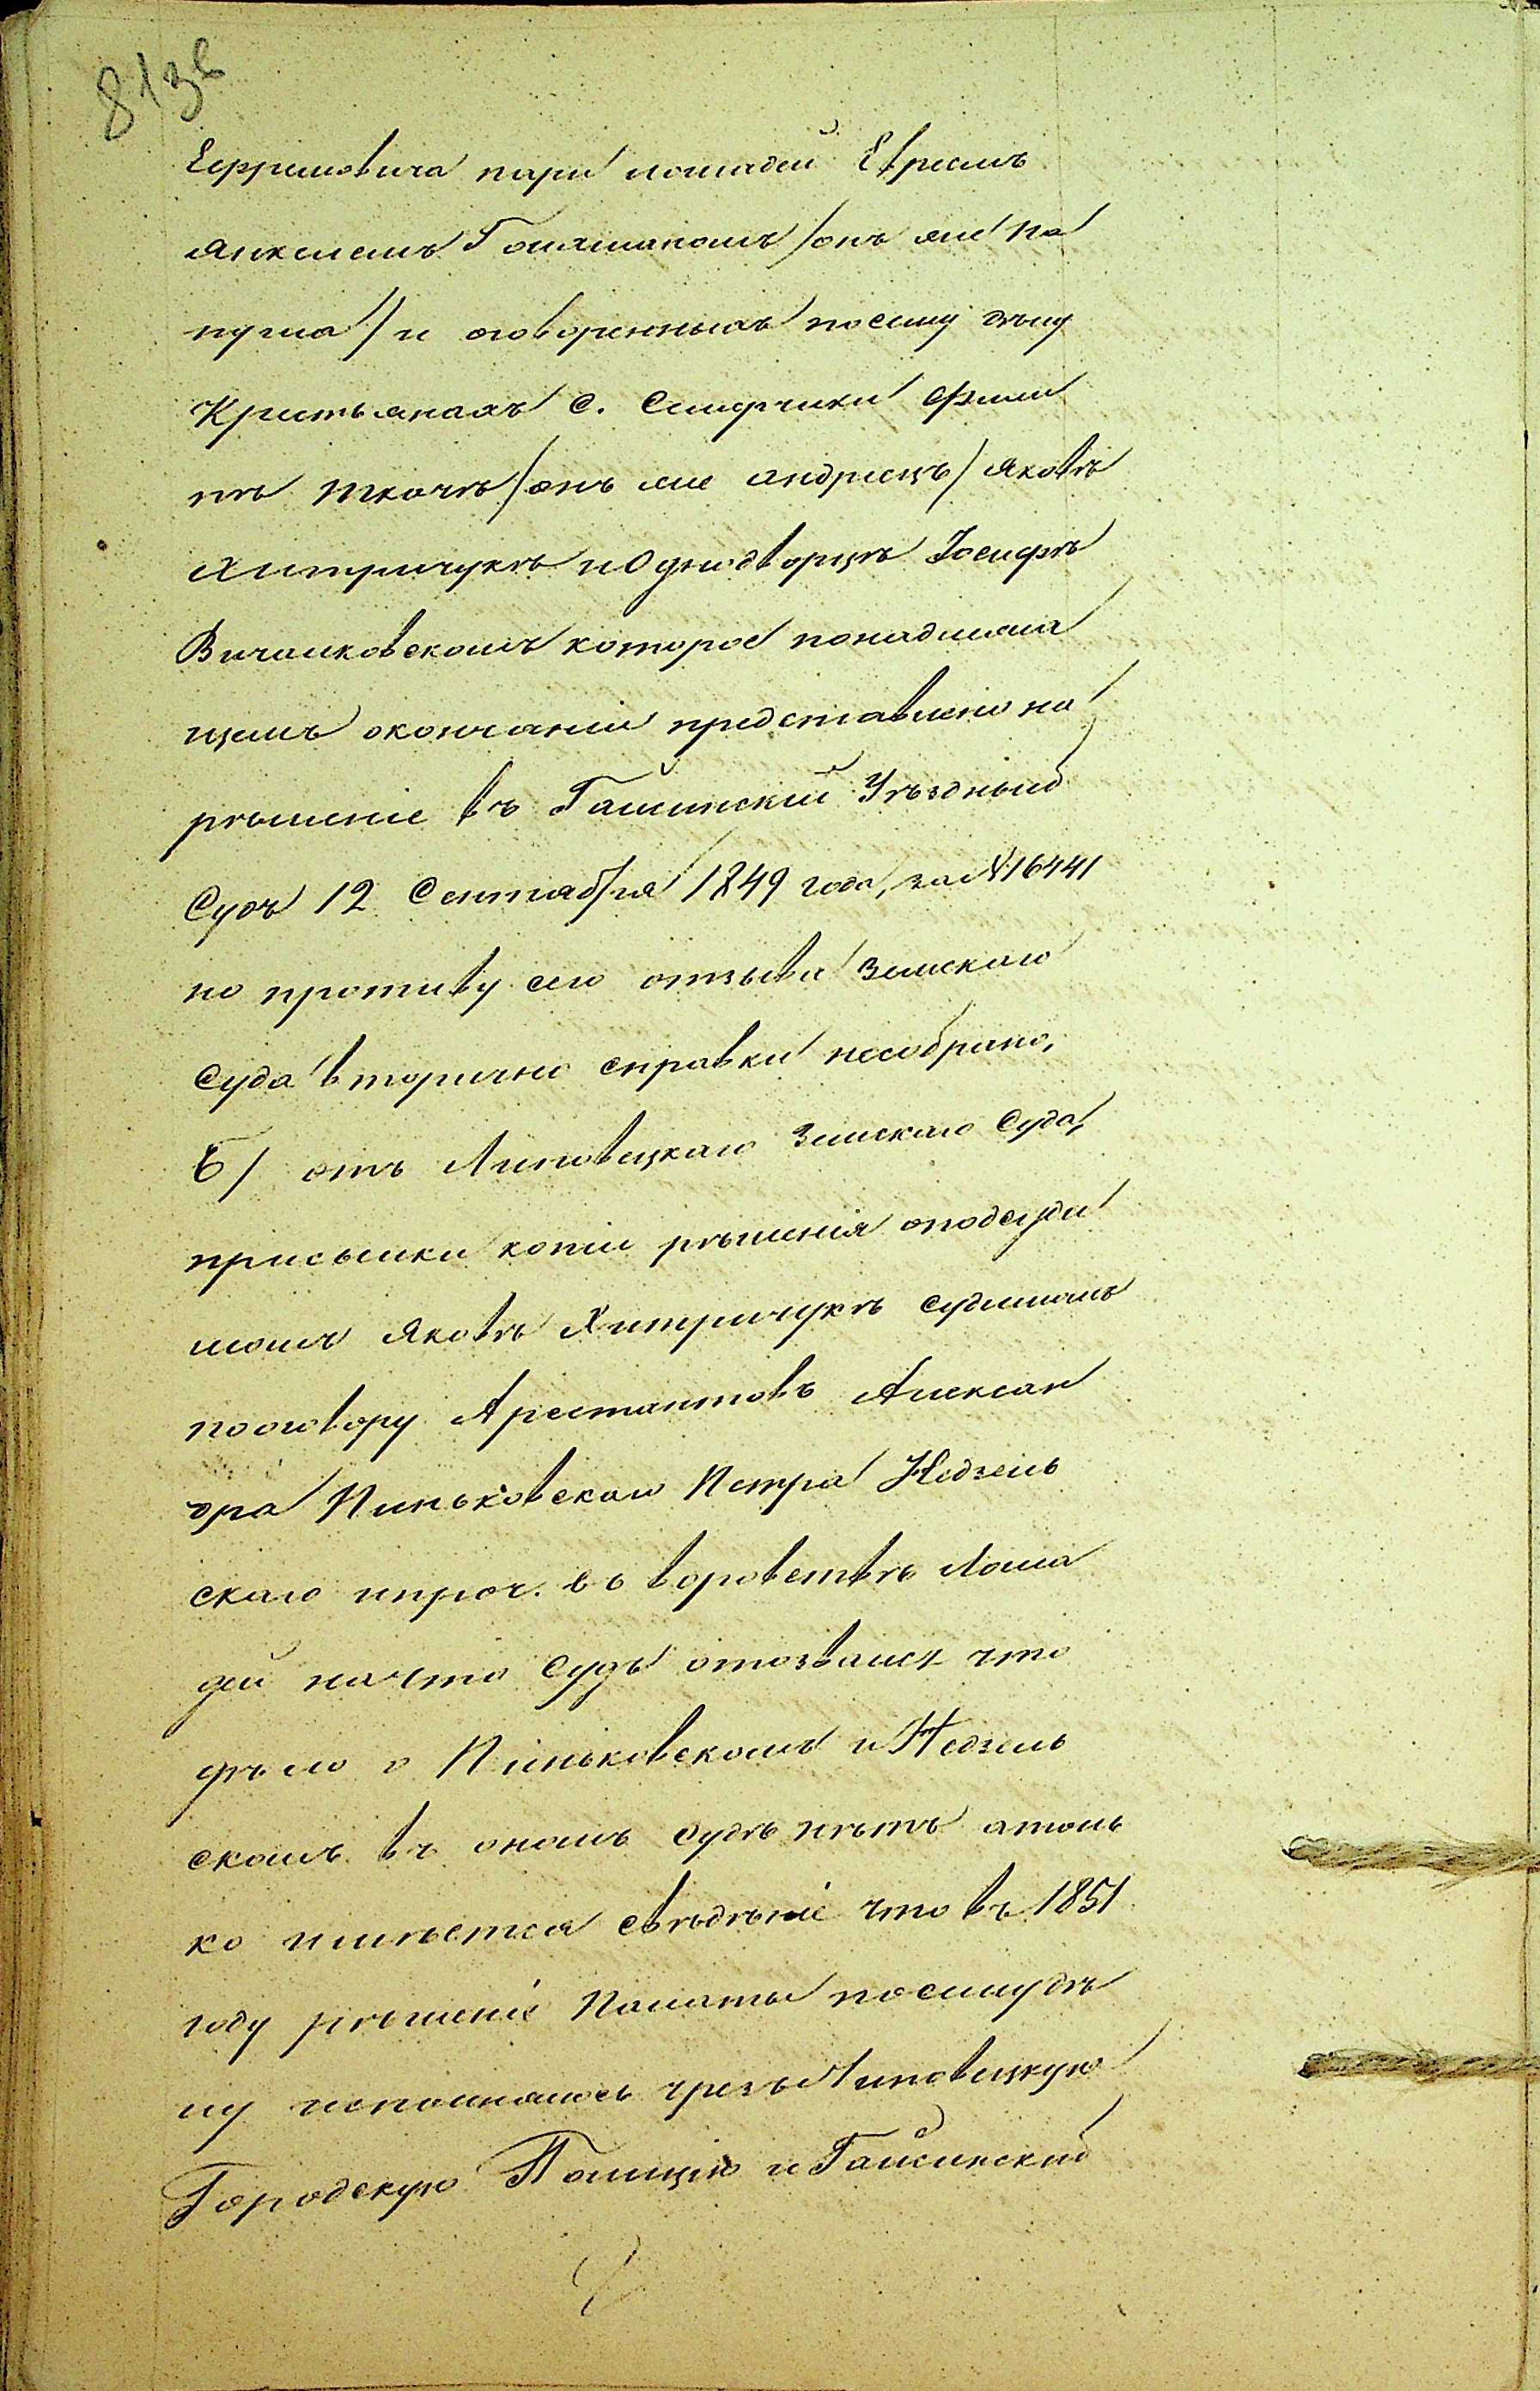 813 об
Ефремовича пары лошадей Евреемъ
Янкелемъ Гопшмакомъ /онъ же Ка
пуша/ и оговоренныхъ посему дѣлу
Крестьянахъ с. Семфрчики Фили
пѣ Ткачѣ /онъ же Андрсецъ/ Яковѣ
Хитричукѣ и Однодворцѣ Іосифѣ
Вичалковскомъ которое понадлежа
щемъ окончаніи представлено на
рѣшеніе въ Гайсинскій Уѣздный
Судъ 12 Сентября 1849 года, за № 16441
но противу сего отзыва Земскаго
Суда вторично справки несобрано,
Б/ отъ Липовецкаго Земскаго Суда,
присылки копіи рѣшенія оподсуди
момъ Яковѣ Хитричукѣ судимомъ
пооговору Арестантовъ Алексан
дра Пиньковскаго Петра Недзель
скаго ипроч. въ воровствѣ Лоша
дей начто Судъ отозвался что
дѣло о Пиньковскомъ и Недзель
скомъ въ ономъ Судѣ нѣтъ атоль
ко имѣется свѣдѣніе что въ 1851
году рѣшеніе Палаты посемудѣ
лу исполнялось чрезъ Липовецкую
Городскую Полицію и Гайсинскій